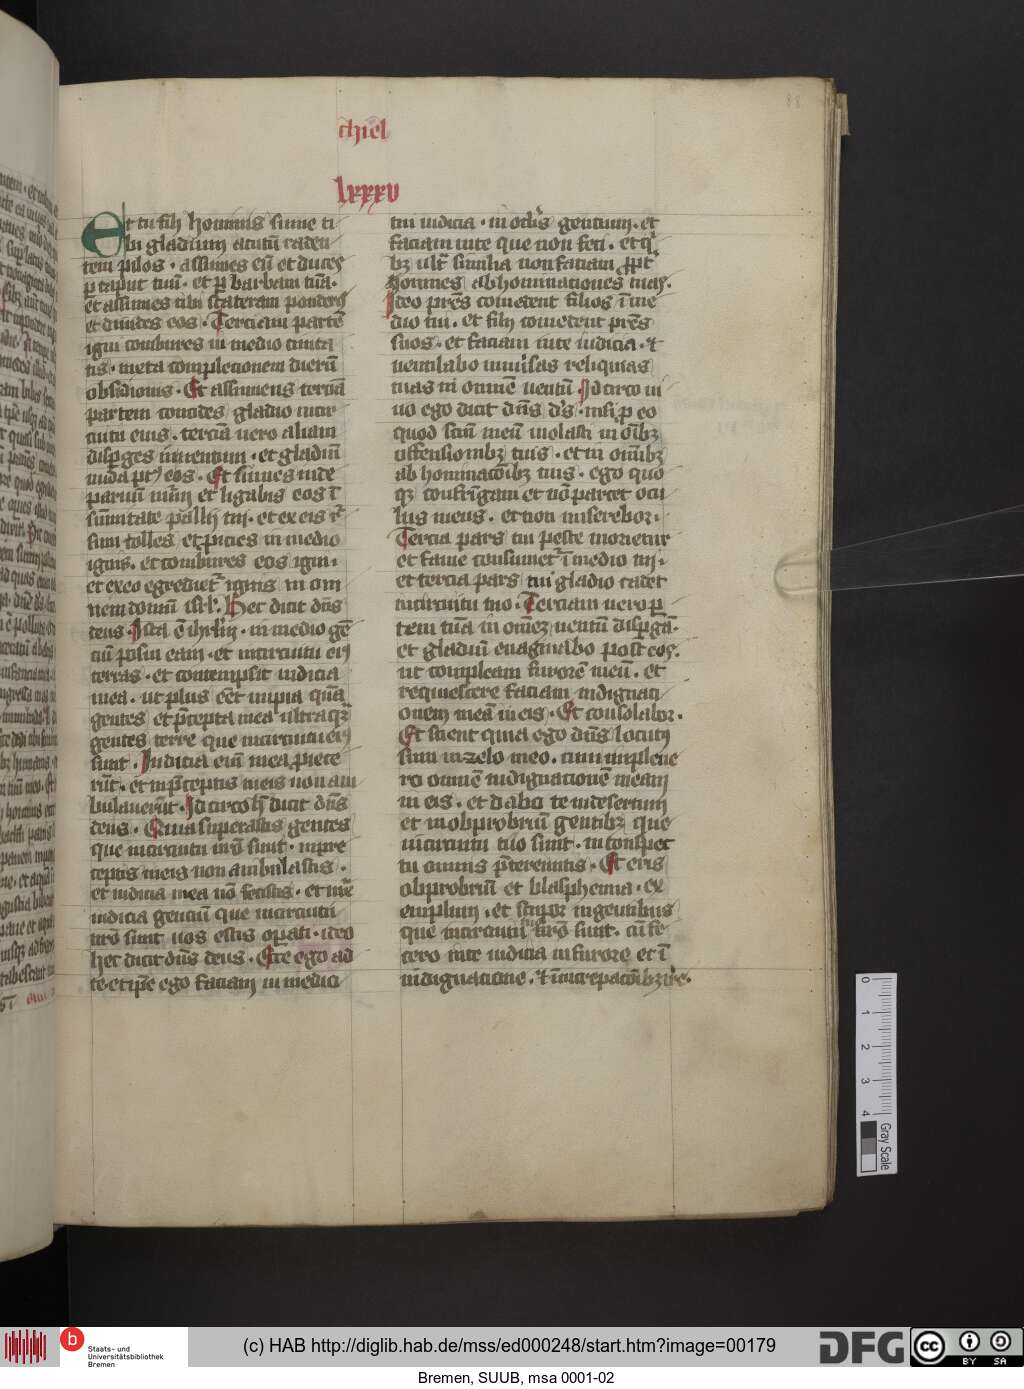 chiel
lxxxv
Et tu fili hominis sume ti
bi gladium acutu̅ raden
tem pilos · assumes eu̅ et duces
ꝑ caput tuu̅ · et ꝑ barbam tua̅ ·
et assumes tibi stateram ponderis
et diuides eos · Terciam parte̅
igni combures in medio ciuita
tis · iuxta completionem dieru̅
obsidionis · Et assumens tercia̅
partem concides gladio in cir
cuitu eius · tercia̅ uero aliam
disp̱ges in uentum · et gladiu̅
nudabo post eos · Et sumes inde
paruu̅ nu̅m et ligabis eos i̅
su̅mitate pallij tui · et ex eis r
sum tolles et proicies in medio
ignis · et combures eos igni ·
et ex eo egrediet̉ ignis in om
nem domu̅ isrl · Hec dicit dn̅s
deus · Ista e̅ ihrl̅m · in medio ge̅
ciu̅ posui eam · et in circuitu ei9
terras · et contempsit iudicia
mea · ut plus e̅et impia qua̅
gentes et p̅cepta mea ultra qua̅
gentes terre que in circuitu ei9
sunt · Iudicia eni̅ mea proiece
ru̅t · et in p̅ceptis meis non am
bulaueru̅t · Idcirco h̅ dicit dn̅s
deus · Quia superastis gentes
que in circuitu ur̅o sunt · in pre
ceptis meis non ambulastis ·
et iudicia mea no̅ fecistis · et iux̅
iudicia genciu̅ que in circuitu
ur̅o sunt uos estis oꝑati · ideo
hec dicit dn̅s deus · Ecce ego ad
te · et ip̅e ego faciam in medio
tui iudicia · in oclis gentium · et
faciam in te que non feci · et q̉
bꝫ ultra similia non faciam ꝓpt̉
homines abhominaciones tuas ·
Ideo pr̅es comedent filios i̅ me
dio tui · et filij comedent pr̅es
suos · et faciam in te iudicia · et
uentilabo uniuersas reliquias
tuas in omne̅ uentu̅ · Idcirco ui
uo ego dicit dn̅s d̅s · nisi ꝓ eo
quod sc̅m meu̅ uiolasti in o̅ibꝫ
offensionibꝫ tuis · et in om̅ibꝫ
abhominac̅oibꝫ tuis · ego quo
qꝫ confri̅gam et no̅ parcet ocu
lus meus · et non miserebor ·
Tercia pars tui peste morietur
et fame consumet̉ i̅ medio tui ·
et tercia pars tui gladio cadet
in circuitu tuo · Terciam uero p
tem tua̅ in om̅eꝫ uentu̅ disꝑga̅ ·
et gladiu̅ euaginabo post eos ·
ut compleam furore̅ meu̅ · et
requiescere faciam indignaci
onem mea̅ in eis · Et consolabor ·
Et scient quia ego dn̅s locut9
sum in zelo meo · cum impleue
ro omne̅ indignacione̅ meam
in eis · et dabo te in desertum
et in obprobriu̅ gentibꝫ que
in circuitu tuo sunt · in conspec
tu omnis p̅tereuntis · Et eris
obprobriu̅ et blasphemia · ex
emplum · et stupor in gentibus
que in circuitu tuo sunt · cu̅ fe
cero in te iudicia in furore et i̅
in̅dignacione · et i̅ increpac̅oibꝫ ire ·
0 1 2 3 4
Gray Scale
Staats- und
Universitätsbibliothek
Bremen
(c) HAB http://diglib.hab.de/mss/ed000248/start.htm?image=00179
DFG
CC BY SA
Bremen, SUUB, msa 0001-02